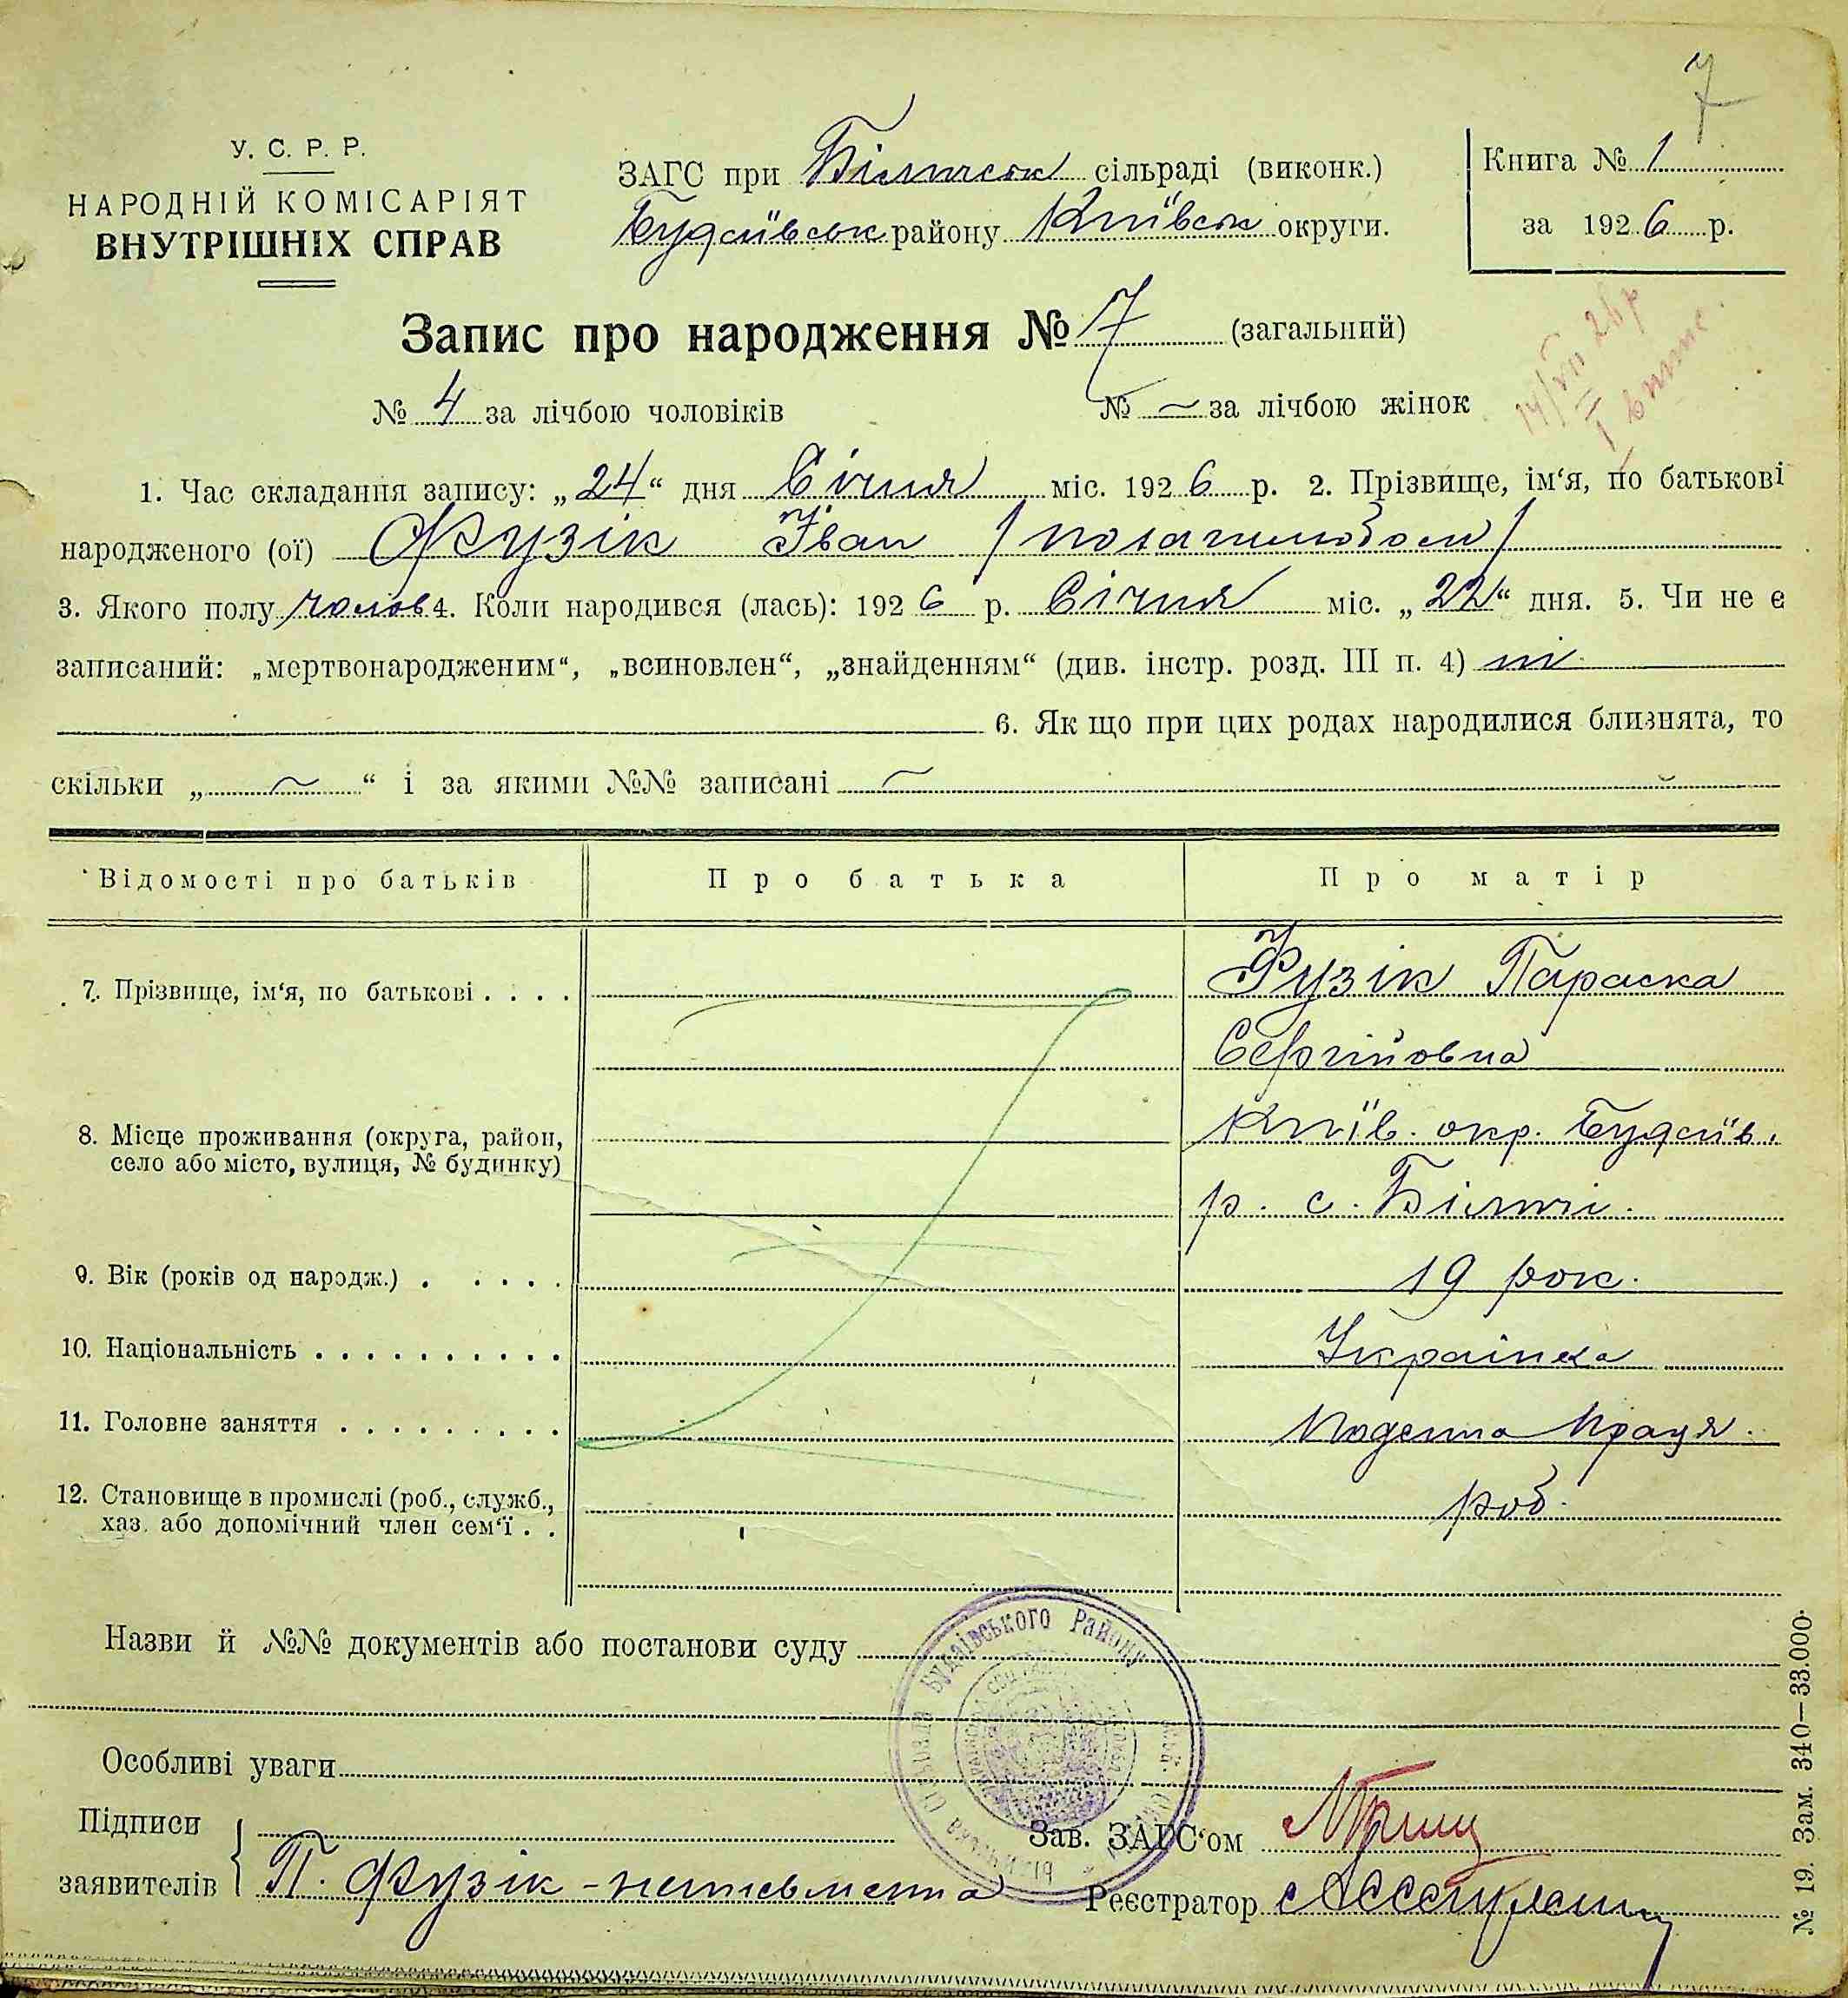 7
У. С. Р. Р.
НАРОДНІЙ КОМІСАРІЯТ
ВНУТРІШНІХ СПРАВ
ЗАГС при Білицськ сільраді (виконк.)
Будаївськ району Київськ округи.
Книга № 1
за 1926 р.
Запис про народження № 7 (загальний)
№ 4 за лічбою чоловіків № ~ за лічбою жінок
14/VII 26 р
1. Час складання запису: „24“ дня Січня міс. 1926 р. 2. Прізвище, ім‘я, по батькові
народженого (ої) Фузік Іван /позашлюбом/
3. Якого полу чолов 4. Коли народився (лась): 1926 р. Січня міс. „22“ дня. 5. Чи не є
записаний: „мертвонародженим“, „всиновлен“, „знайденням“ (див. інстр. розд. III п. 4) ні
6. Як що при цих родах народилися близнята, то
скільки „ ~ “ і за якими №№ записані ~
Відомості про батьків Про батька Про матір
7. Прізвище, ім‘я, по батькові . . . . Фузік Параска
Сергійовна
8. Місце проживання (округа, район, Київ. окр. Будаїв.
село або місто, вулиця, № будинку) р. с. Біличі.
9. Вік (років од народж.) . . . . . 19 рок.
10. Національність . . . . . . . . . . Українка
11. Головне заняття . . . . . . . . . Поденна праця.
12. Становище в промислі (роб., служб., роб.
хаз. або допомічний член сем‘ї . .
Назви й №№ документів або постанови суду
Будаївського Району
Особливі уваги
Підписи
заявителів П. Фузік - неписьменна
Зав. ЗАГС‘ом
Реєстратор
№ 19. Зам. 340—33.000.